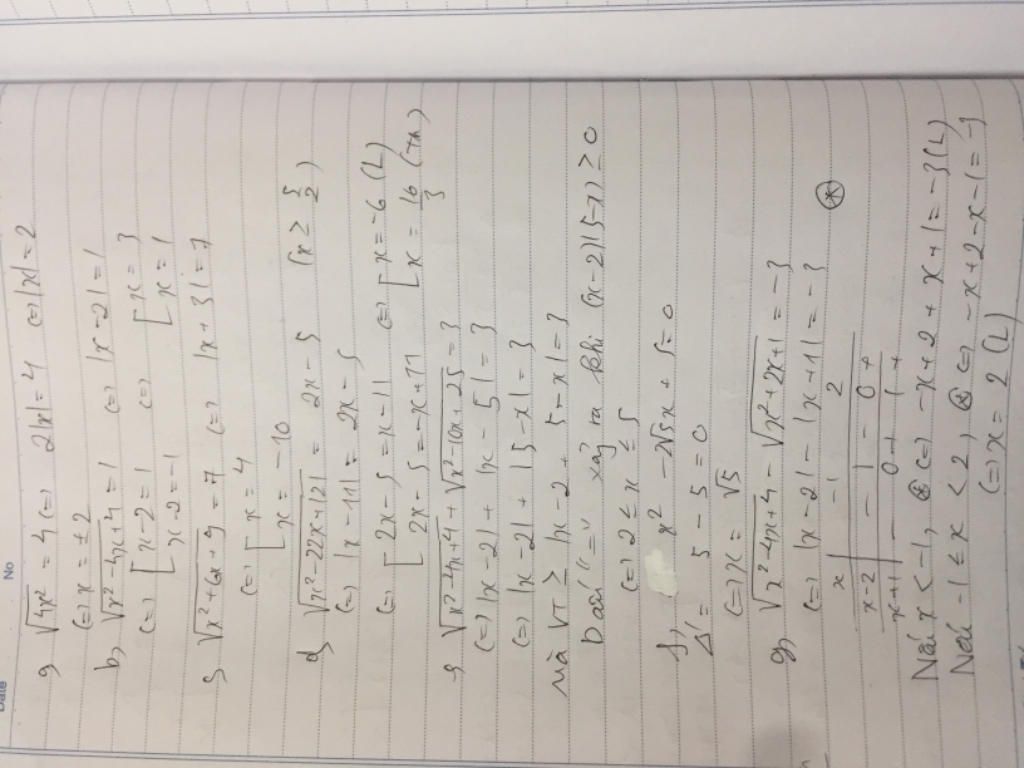 Date
No
a, √4x² = 4 (=) 2|x| = 4 (=) |x| = 2
(=) x = ±2
b, √x²-4x+4 = 1 (=) |x-2| = 1
(=) [ x-2 = 1 (=) [ x = 3
x-2 = -1 [ x = 1
c, √x²+6x+9 = 7 (=) |x+3| = 7
(=) [ x = 4
[ x = -10
d, √x²-22x+121 = 2x-5 (x ≥ 5/2)
(=) |x-11| = 2x-5
(=) [ 2x-5 = x-11 (=) [ x = -6 (L)
[ 2x-5 = -x+11 [ x = 16/3 (TM)
e, √x²-4x+4 + √x²-10x+25 = 3
(=) |x-2| + |x-5| = 3
(=) |x-2| + |5-x| = 3
mà VT ≥ |x-2+5-x| = 3
Dấu "=" xảy ra khi (x-2)(5-x) ≥ 0
(=) 2 ≤ x ≤ 5
f, x² - 2√5x + 5 = 0
Δ' = 5 - 5 = 0
(=) x = √5
g, √x²-4x+4 - √x²+2x+1 = -3
(=) |x-2| - |x+1| = -3 (*)
x -1 2
x-2 - | - 0 +
x+1 - 0 + | +
Nếu x < -1, (*) (=) -x+2+x+1 = -3 (L)
Nếu -1 ≤ x < 2, (*) (=) -x+2-x-1 = -3
(=) x = 2 (L)